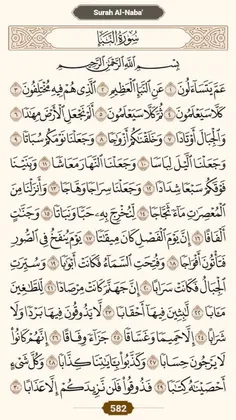 Surah Al-Naba'
سُورَةُ النَّبَإِ
بِسْمِ اللَّهِ الرَّحْمَٰنِ الرَّحِيمِ
عَمَّ يَتَسَاءَلُونَ ١ عَنِ النَّبَإِ الْعَظِيمِ ٢ الَّذِي هُمْ فِيهِ مُخْتَلِفُونَ ٣
كَلَّا سَيَعْلَمُونَ ٤ ثُمَّ كَلَّا سَيَعْلَمُونَ ٥ أَلَمْ نَجْعَلِ الْأَرْضَ مِهَادًا ٦
وَالْجِبَالَ أَوْتَادًا ٧ وَخَلَقْنَاكُمْ أَزْوَاجًا ٨ وَجَعَلْنَا نَوْمَكُمْ سُبَاتًا ٩
وَجَعَلْنَا اللَّيْلَ لِبَاسًا ١٠ وَجَعَلْنَا النَّهَارَ مَعَاشًا ١١ وَبَنَيْنَا
فَوْقَكُمْ سَبْعًا شِدَادًا ١٢ وَجَعَلْنَا سِرَاجًا وَهَّاجًا ١٣ وَأَنْزَلْنَا مِنَ
الْمُعْصِرَاتِ مَاءً ثَجَّاجًا ١٤ لِنُخْرِجَ بِهِ حَبًّا وَنَبَاتًا ١٥ وَجَنَّاتٍ
أَلْفَافًا ١٦ إِنَّ يَوْمَ الْفَصْلِ كَانَ مِيقَاتًا ١٧ يَوْمَ يُنْفَخُ فِي الصُّورِ
فَتَأْتُونَ أَفْوَاجًا ١٨ وَفُتِحَتِ السَّمَاءُ فَكَانَتْ أَبْوَابًا ١٩ وَسُيِّرَتِ
الْجِبَالُ فَكَانَتْ سَرَابًا ٢٠ إِنَّ جَهَنَّمَ كَانَتْ مِرْصَادًا ٢١ لِلطَّاغِينَ
مَآبًا ٢٢ لَابِثِينَ فِيهَا أَحْقَابًا ٢٣ لَا يَذُوقُونَ فِيهَا بَرْدًا وَلَا
شَرَابًا ٢٤ إِلَّا حَمِيمًا وَغَسَّاقًا ٢٥ جَزَاءً وِفَاقًا ٢٦ إِنَّهُمْ كَانُوا
لَا يَرْجُونَ حِسَابًا ٢٧ وَكَذَّبُوا بِآيَاتِنَا كِذَّابًا ٢٨ وَكُلَّ شَيْءٍ
أَحْصَيْنَاهُ كِتَابًا ٢٩ فَذُوقُوا فَلَنْ نَزِيدَكُمْ إِلَّا عَذَابًا ٣٠
582